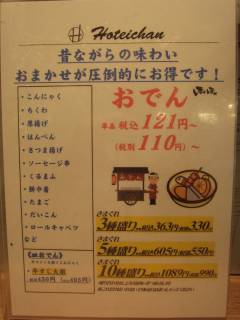 Hoteichan
昔ながらの味わい
おまかせが圧倒的にお得です！
・こんにゃく
・ちくわ
・厚揚げ
・はんぺん
・さつま揚げ
・ソーセージ串
・くるまふ
・餅巾着
・たまご
・だいこん
・ロールキャベツ
など
おでん
単品 税込 121円～
(税別) 110円～
3種盛り 税込 363円 税別 330円
5種盛り 税込 605円 税別 550円
10種盛り 税込 1089円 税別 990円
牛すじ大根